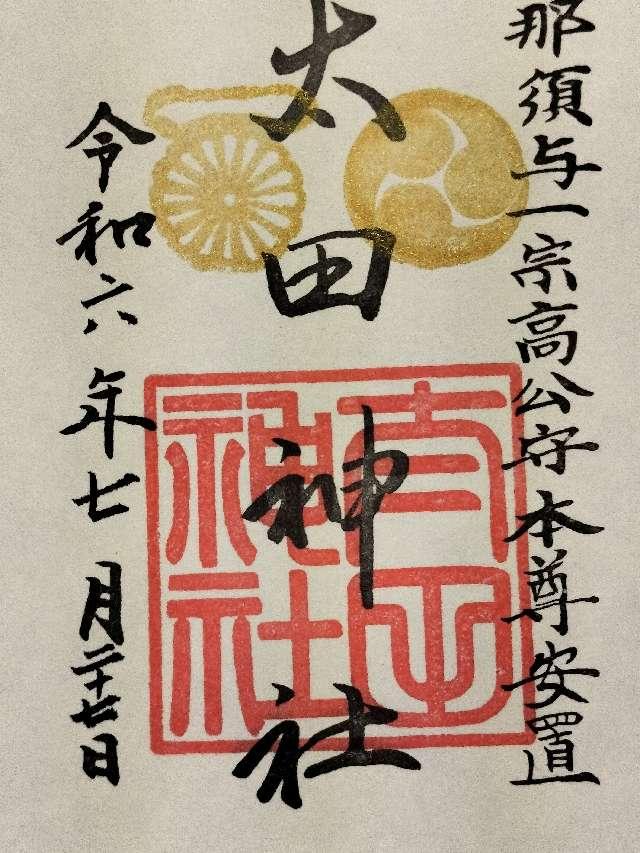 那須与一宗高公守本尊安置
太田神社
令和六年七月二十七日